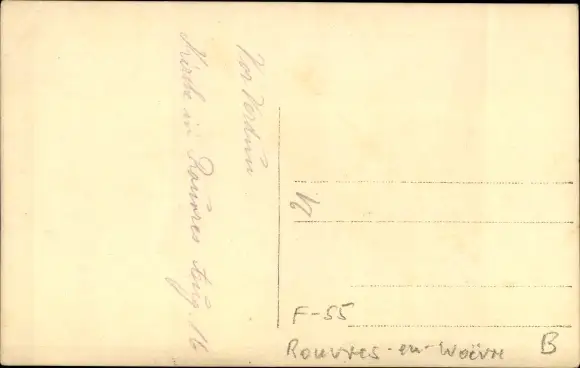 Vor Verdun.
Kirche in Rouvres Aug. 16
F-55
Rouvres-en-Woëvre
B